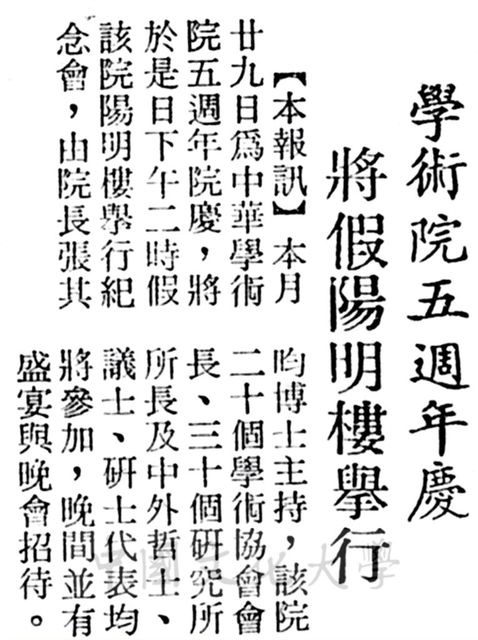 學術院五週年慶
將假陽明樓舉行
【本報訊】本月
廿九日為中華學術
院五週年院慶，將
於是日下午二時假
該院陽明樓舉行紀
念會，由院長張其
昀博士主持，該院
二十個學術協會會
長、三十個研究所
所長及中外哲士、
議士、研士代表均
將參加，晚間並有
盛宴與晚會招待。
中國文化大學